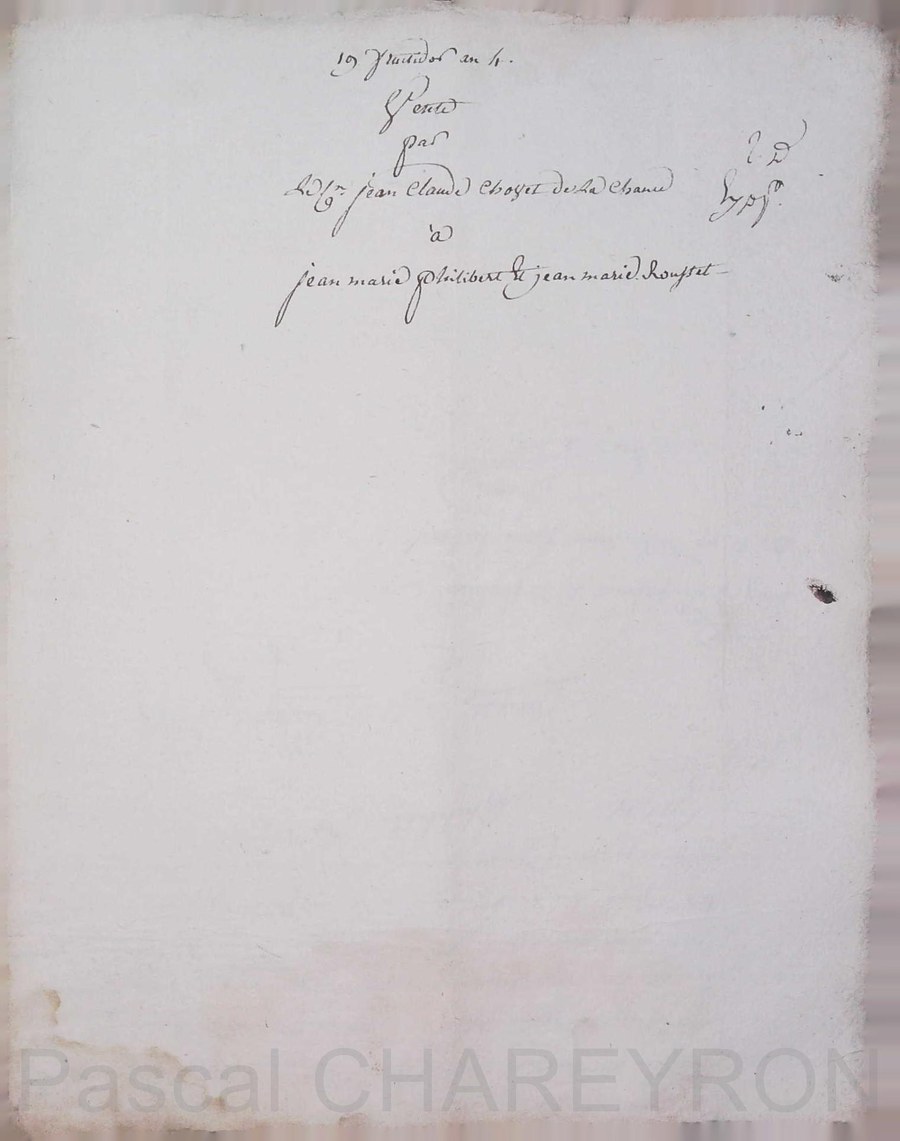 19 fructidor an 4.
Vente
par
Le Cn. jean Claude Choyet de la Chance
à
jean marie philibert Et jean marie Rousset
Pascal CHAREYRON